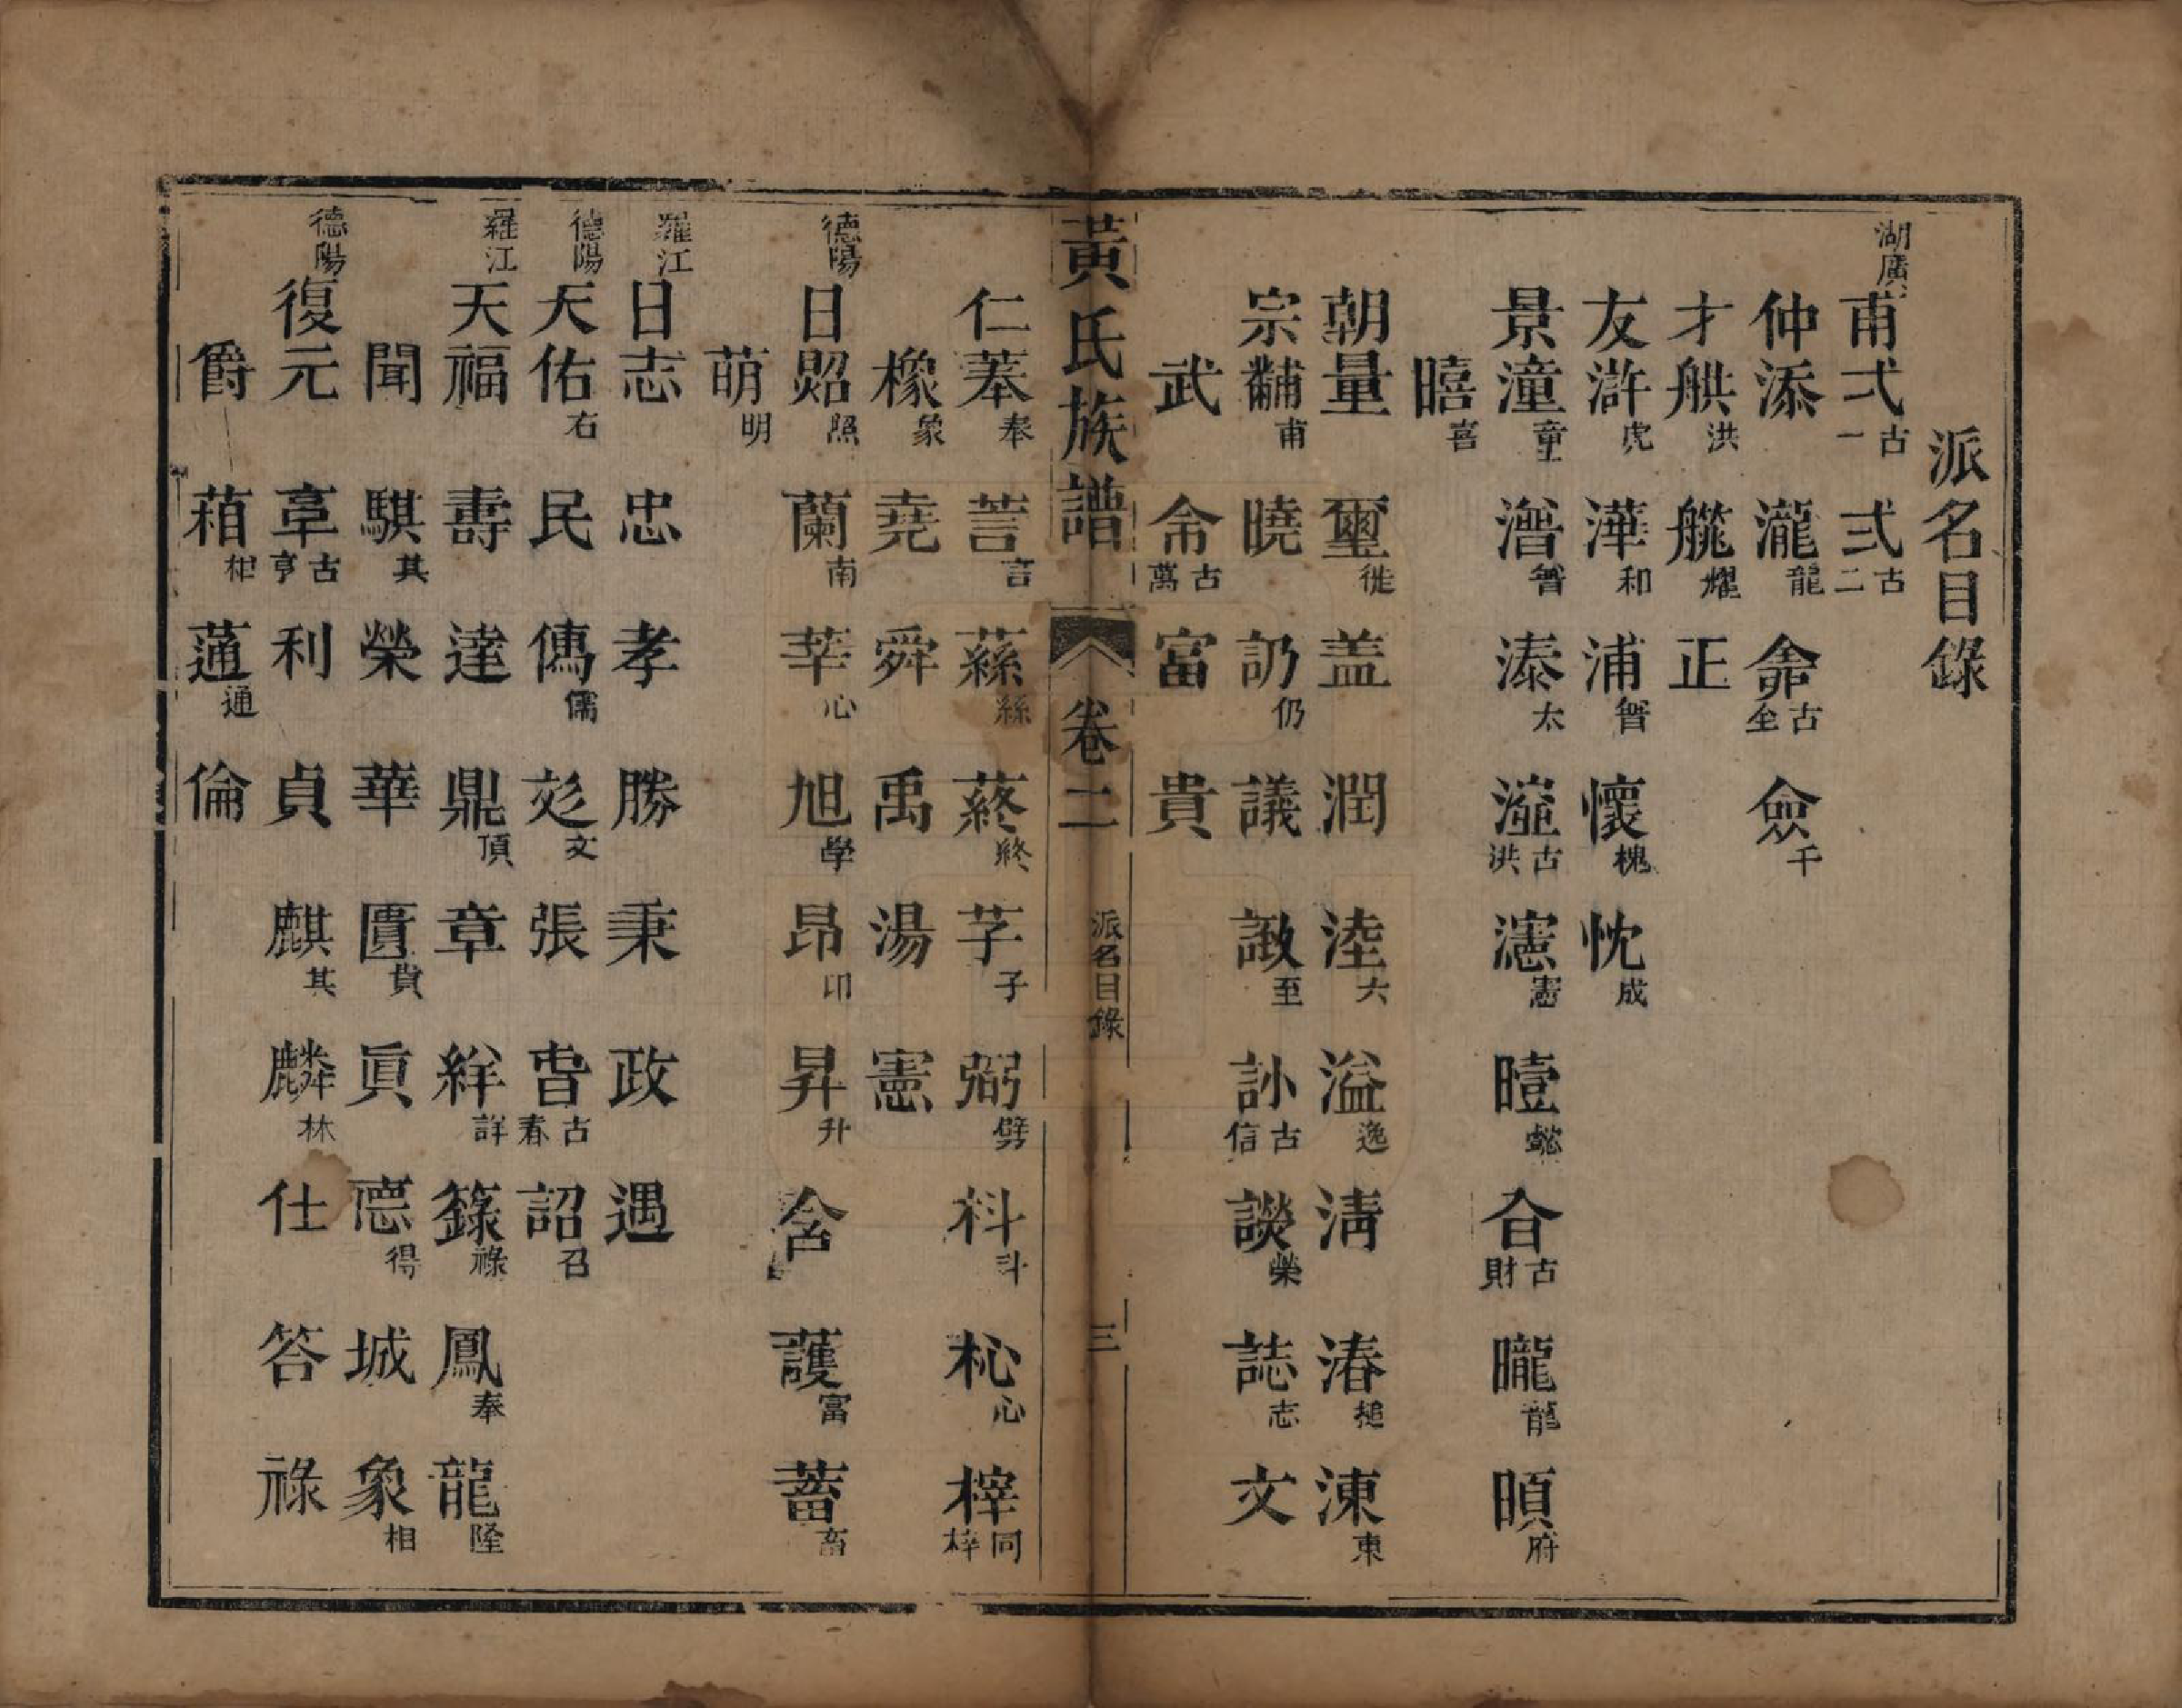 派名目錄
湖廣 甫 弌古一 弍古二
仲 添 瀧龍 侴古全 僉千
才 舼洪 艞耀 正
友 滸虎 澕和 浦智 懷槐 忱成
景 潼童 潪智 溱太 古洪 瀗憲 曀懿 古財 曨龍 㬼府
暿喜
朝 量 璽徙 盖 潤 淕六 溢逸 清 湷槌 涷東
宗 黼甫 曉 訒仍 議 諏至 訫古信 談榮 誌志 文
武 古萬 富 貴
黃氏族譜 卷二 派名目錄 三
仁 菶奉 䓂言 蕬絲 蔠終 芓子 弼劈 枓斗 杺心 榟同梓
橡象 堯 舜 禹 湯 憲
德陽 日 照 蘭南 莘心 旭學 昂卬 昇升 含 護富 蓄畜
萌明
羅江 日 志 忠 孝 勝 秉 政 遇
德陽 天 佑右 民 儒 彣文 張 旾古春 詔召
羅江 天 福 壽 達 鼎頂 章 絴詳 籙祿 鳳奉 龍隆
聞 騏其 榮 華 匱貴 眞 悳得 城 象相
德陽 復 元 古亨 利 貞 麒其 麟林 仕 答 祿
爵 葙相 蓪通 倫